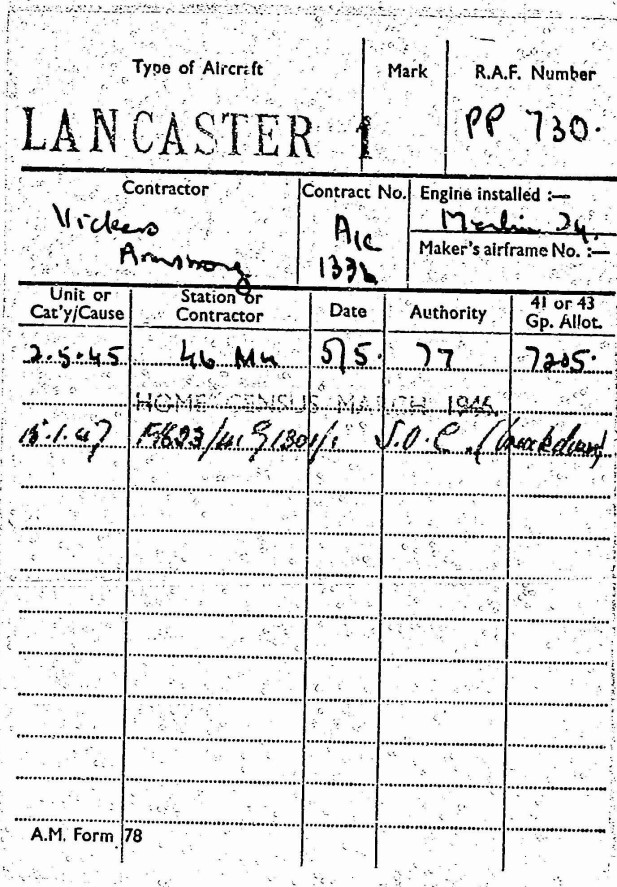 Type of Aircraft Mark R.A.F. Number
LANCASTER 1 PP 730.
Contractor Contract No. Engine installed :—
Vickers Armstrong A/c 1336 Merlin 24.
Maker's airframe No. :—
Unit or Cat'y/Cause Station or Contractor Date Authority 41 or 43 Gp. Allot.
2.5.45 46 Mu 5/5. 77 7205.
HOME CENSUS MARCH 1946.
15.1.47 S.O.C.
A.M. Form 78